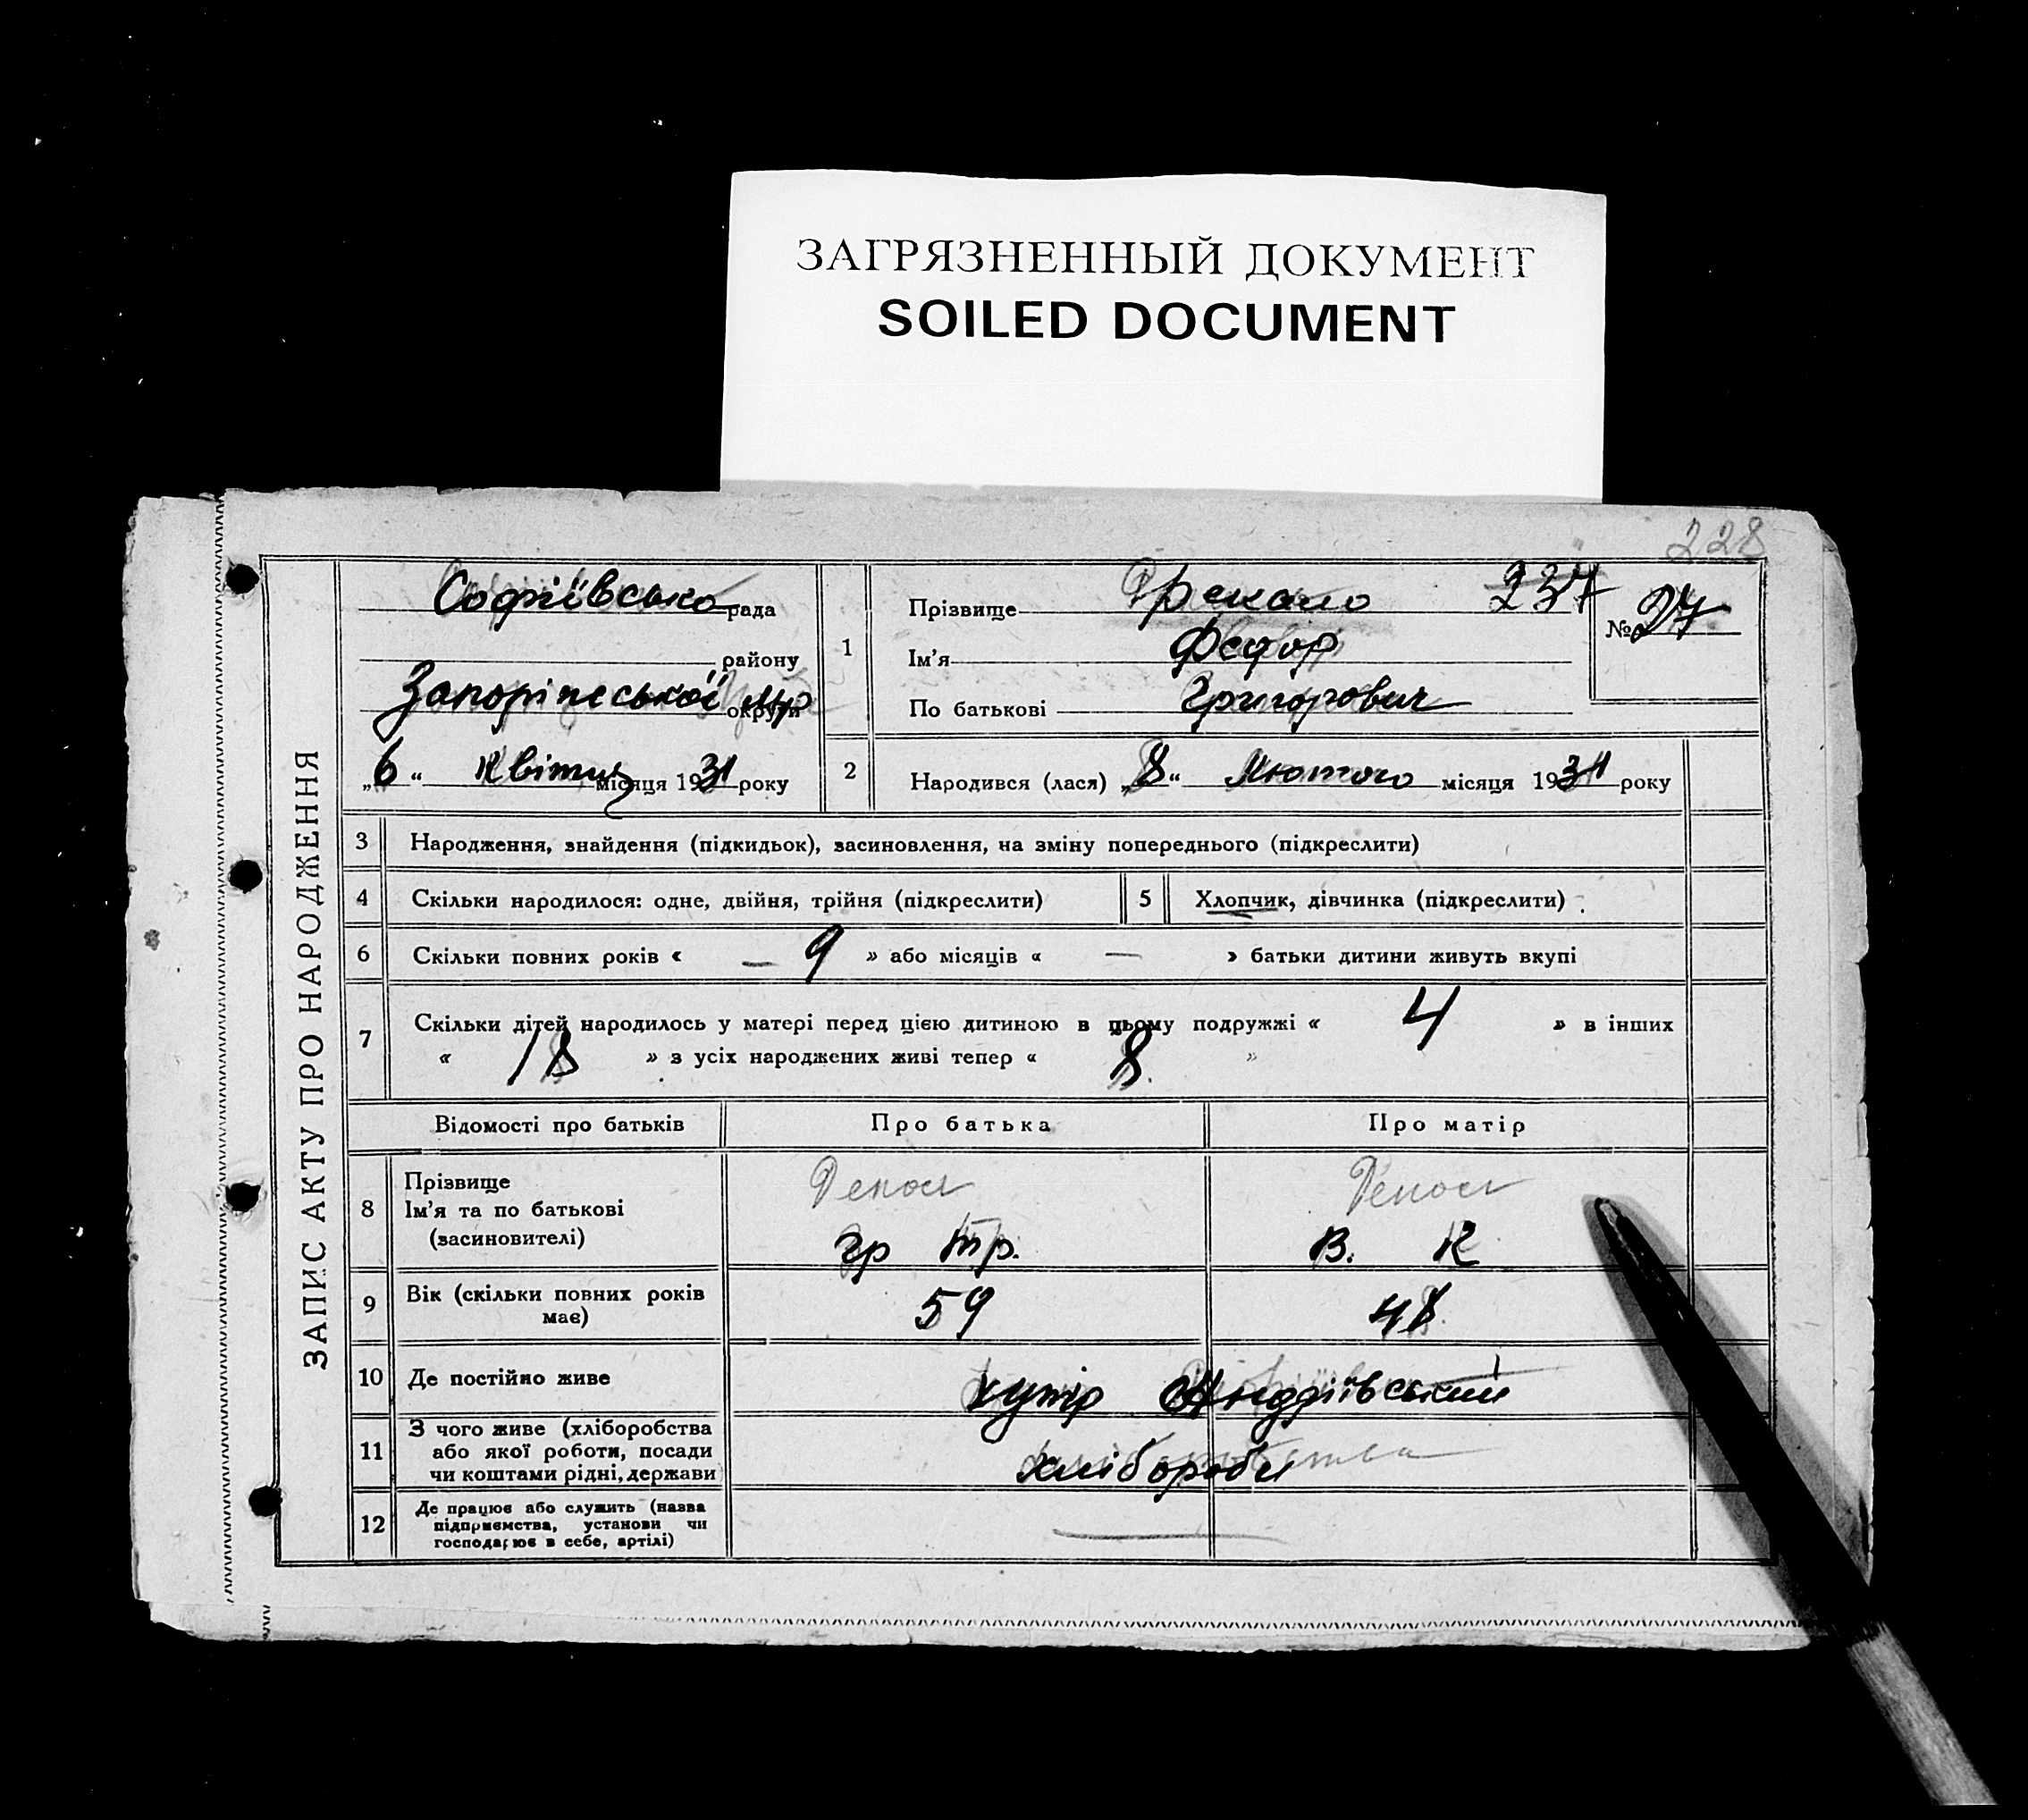 ЗАГРЯЗНЕННЫЙ ДОКУМЕНТ
SOILED DOCUMENT
228
ЗАПИС АКТУ ПРО НАРОДЖЕННЯ
Софіївсько рада
району
округи
„6“ Квітня місяця 1931 року
1
Прізвище 237
Ім'я Федор
По батькові Григорович
№ 27
2 Народився (лася) „8“ Лютого місяця 1931 року
3 Народження, знайдення (підкидьок), засиновлення, на зміну попереднього (підкреслити)
4 Скільки народилося: одне, двійня, трійня (підкреслити)
5 Хлопчик, дівчинка (підкреслити)
6 Скільки повних років « — 9 » або місяців « — » батьки дитини живуть вкупі
7 Скільки дітей народилось у матері перед цією дитиною в цьому подружжі « 4 » в інших
« 18 » з усіх народжених живі тепер « 8 »
Відомості про батьків Про батька Про матір
8
Прізвище
Ім'я та по батькові
(засиновителі)
Гр Тр. В. К
9 Вік (скільки повних років
має)
59 48
10 Де постійно живе хутір Андріївський
11
З чого живе (хліборобства
або якої роботи, посади
чи коштами рідні, держави
хлібороби
12
Де працює або служить (назва
підприємства, установи чи
господарює в себе, артілі)